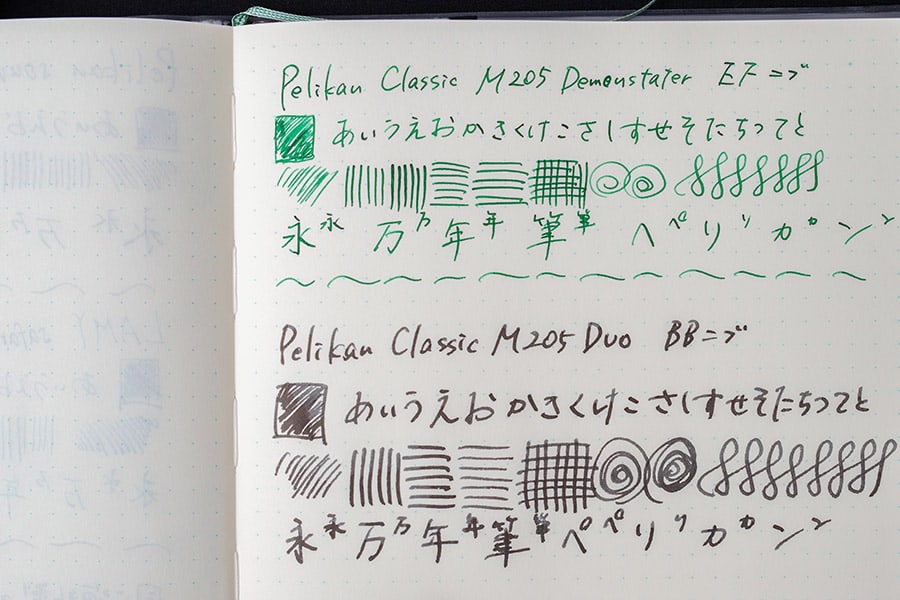 Pelikan Classic M205 Demonstater EF ニブ
あいうえおかきくけこさしすせそたちつてと
永永 万万年年 筆筆 ペペリリカカンン
Pelikan Classic M205 Duo BBニブ
あいうえおかきくけこさしすせそたちつてと
永永万万年年筆筆ペペリリカカンン